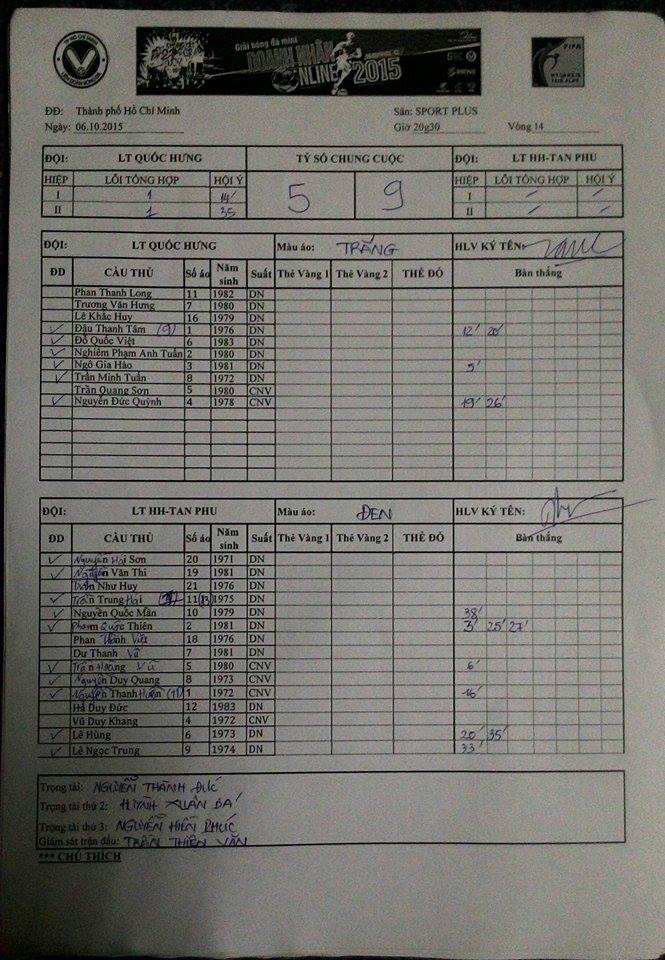 TP HỒ CHÍ MINH
LIÊN ĐOÀN BÓNG ĐÁ
Giải bóng đá mini
DOANH NHÂN
NLINE 2015
FIFA
MY GAME IS
FAIR PLAY
ĐĐ: Thành phố Hồ Chí Minh Sân: SPORT PLUS
Ngày: 06.10.2015 Giờ 20g30 Vòng 14
ĐỘI: LT QUỐC HƯNG TỶ SỐ CHUNG CUỘC ĐỘI: LT HH-TAN PHU
HIỆP LỖI TỔNG HỢP HỘI Ý 5 9 HIỆP LỖI TỔNG HỢP HỘI Ý
I 1 14' I / /
II 1 35 II / /
ĐỘI: LT QUỐC HƯNG Màu áo: TRẮNG HLV KÝ TÊN:
ĐD CẦU THỦ Số áo Năm sinh Suất Thẻ Vàng 1 Thẻ Vàng 2 THẺ ĐỎ Bàn thắng
Phan Thanh Long 11 1982 DN
Trương Văn Hưng 7 1980 DN
Lê Khắc Huy 16 1979 DN
✓ Đậu Thanh Tâm (9) 1 1976 DN 12' 20'
✓ Đỗ Quốc Việt 6 1983 DN
✓ Nghiêm Phạm Anh Tuấn 2 1980 DN
✓ Ngô Gia Hào 3 1981 DN 5'
✓ Trần Minh Tuấn 8 1972 DN
Trần Quang Sơn 5 1980 CNV
✓ Nguyễn Đức Quỳnh 4 1978 CNV 19' 26'
ĐỘI: LT HH-TAN PHU Màu áo: ĐEN HLV KÝ TÊN:
ĐD CẦU THỦ Số áo Năm sinh Suất Thẻ Vàng 1 Thẻ Vàng 2 THẺ ĐỎ Bàn thắng
✓ Nguyễn Hải Sơn 20 1971 DN
✓ Nguyễn Văn Thi 19 1981 DN
Trần Như Huy 21 1976 DN
✓ Trần Trung Hải 11 (13) 1975 DN
✓ Nguyễn Quốc Mẫn 10 1979 DN 38'
✓ Phạm Quốc Thiên 2 1981 DN 3' 25' 27'
Phan Thành Việt 18 1976 DN
Dư Thanh Vũ 7 1981 DN
✓ Trần Hoàng Vũ 5 1980 CNV 6'
✓ Nguyễn Duy Quang 8 1973 CNV
✓ Nguyễn Thanh Hiền (11) 1 1972 CNV 16'
Hà Duy Đức 12 1983 DN
Vũ Duy Khang 4 1972 CNV
✓ Lê Hùng 6 1973 DN 20' 35'
✓ Lê Ngọc Trung 9 1974 DN 33'
Trọng tài: NGUYỄN THÀNH ĐỨC
Trọng tài thứ 2: HUỲNH XUÂN BA
Trọng tài thứ 3: NGUYỄN HIỀN PHÚC
Giám sát trận đấu: TRẦN THIÊN VĂN
*** CHÚ THÍCH